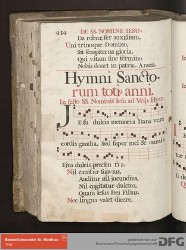 434 DE SS. NOMINE IESU.
Da robur, fer auxilium,
Uni trinoque Domino,
Sit sempiterna gloria,
Qui vitam sine termino
Nobis donet in patria. Amen.
Hymni Sancto-
rum toti anni.
In festo SS. Nominis Iesu ad Vesp. Hym.
Jesu dulcis memoria Dans vera
cordis gaudia, Sed super mel & omnia
Ejus dulcis præsentia.
Nil canitur suavius,
Auditur nil jucundius,
Nil cogitatur dulcius,
Quam Jesus Dei Filius.
Nec lingua valet dicere,
DFG